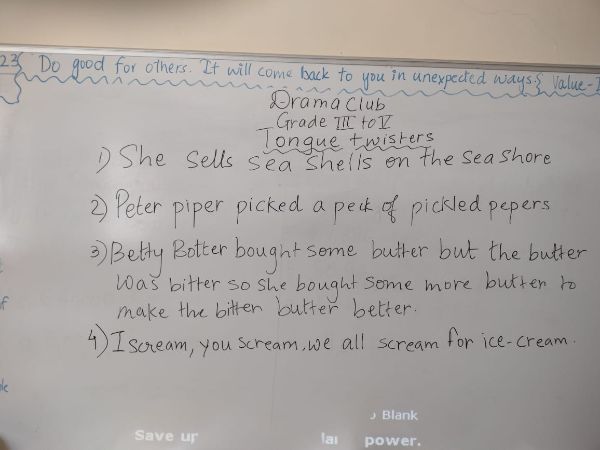 23
Do good for others. It will come back to you in unexpected ways. Value-
Drama Club
Grade III to V
Tongue twisters
1) She sells sea shells on the sea shore
2) Peter piper picked a peck of pickled pepers
3) Betty Botter bought some butter but the butter
was bitter so she bought some more butter to
make the bitter butter better.
4) I scream, you scream, we all scream for ice-cream.
Blank
Save up power.